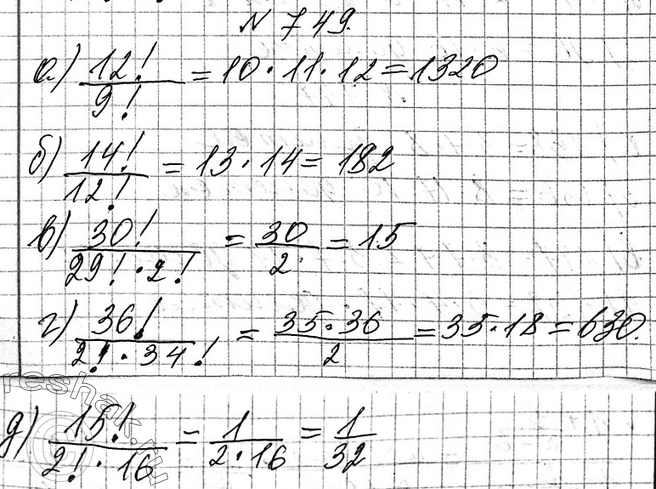 N 749.
а) 12!/9! = 10·11·12 = 1320
б) 14!/12! = 13·14 = 182
в) 30!/(29!·2!) = 30/2 = 15
г) 36!/(2!·34!) = 35·36/2 = 35·18 = 630.
д) 15!/(2!·16) = 1/(2·16) = 1/32
reshak.ru